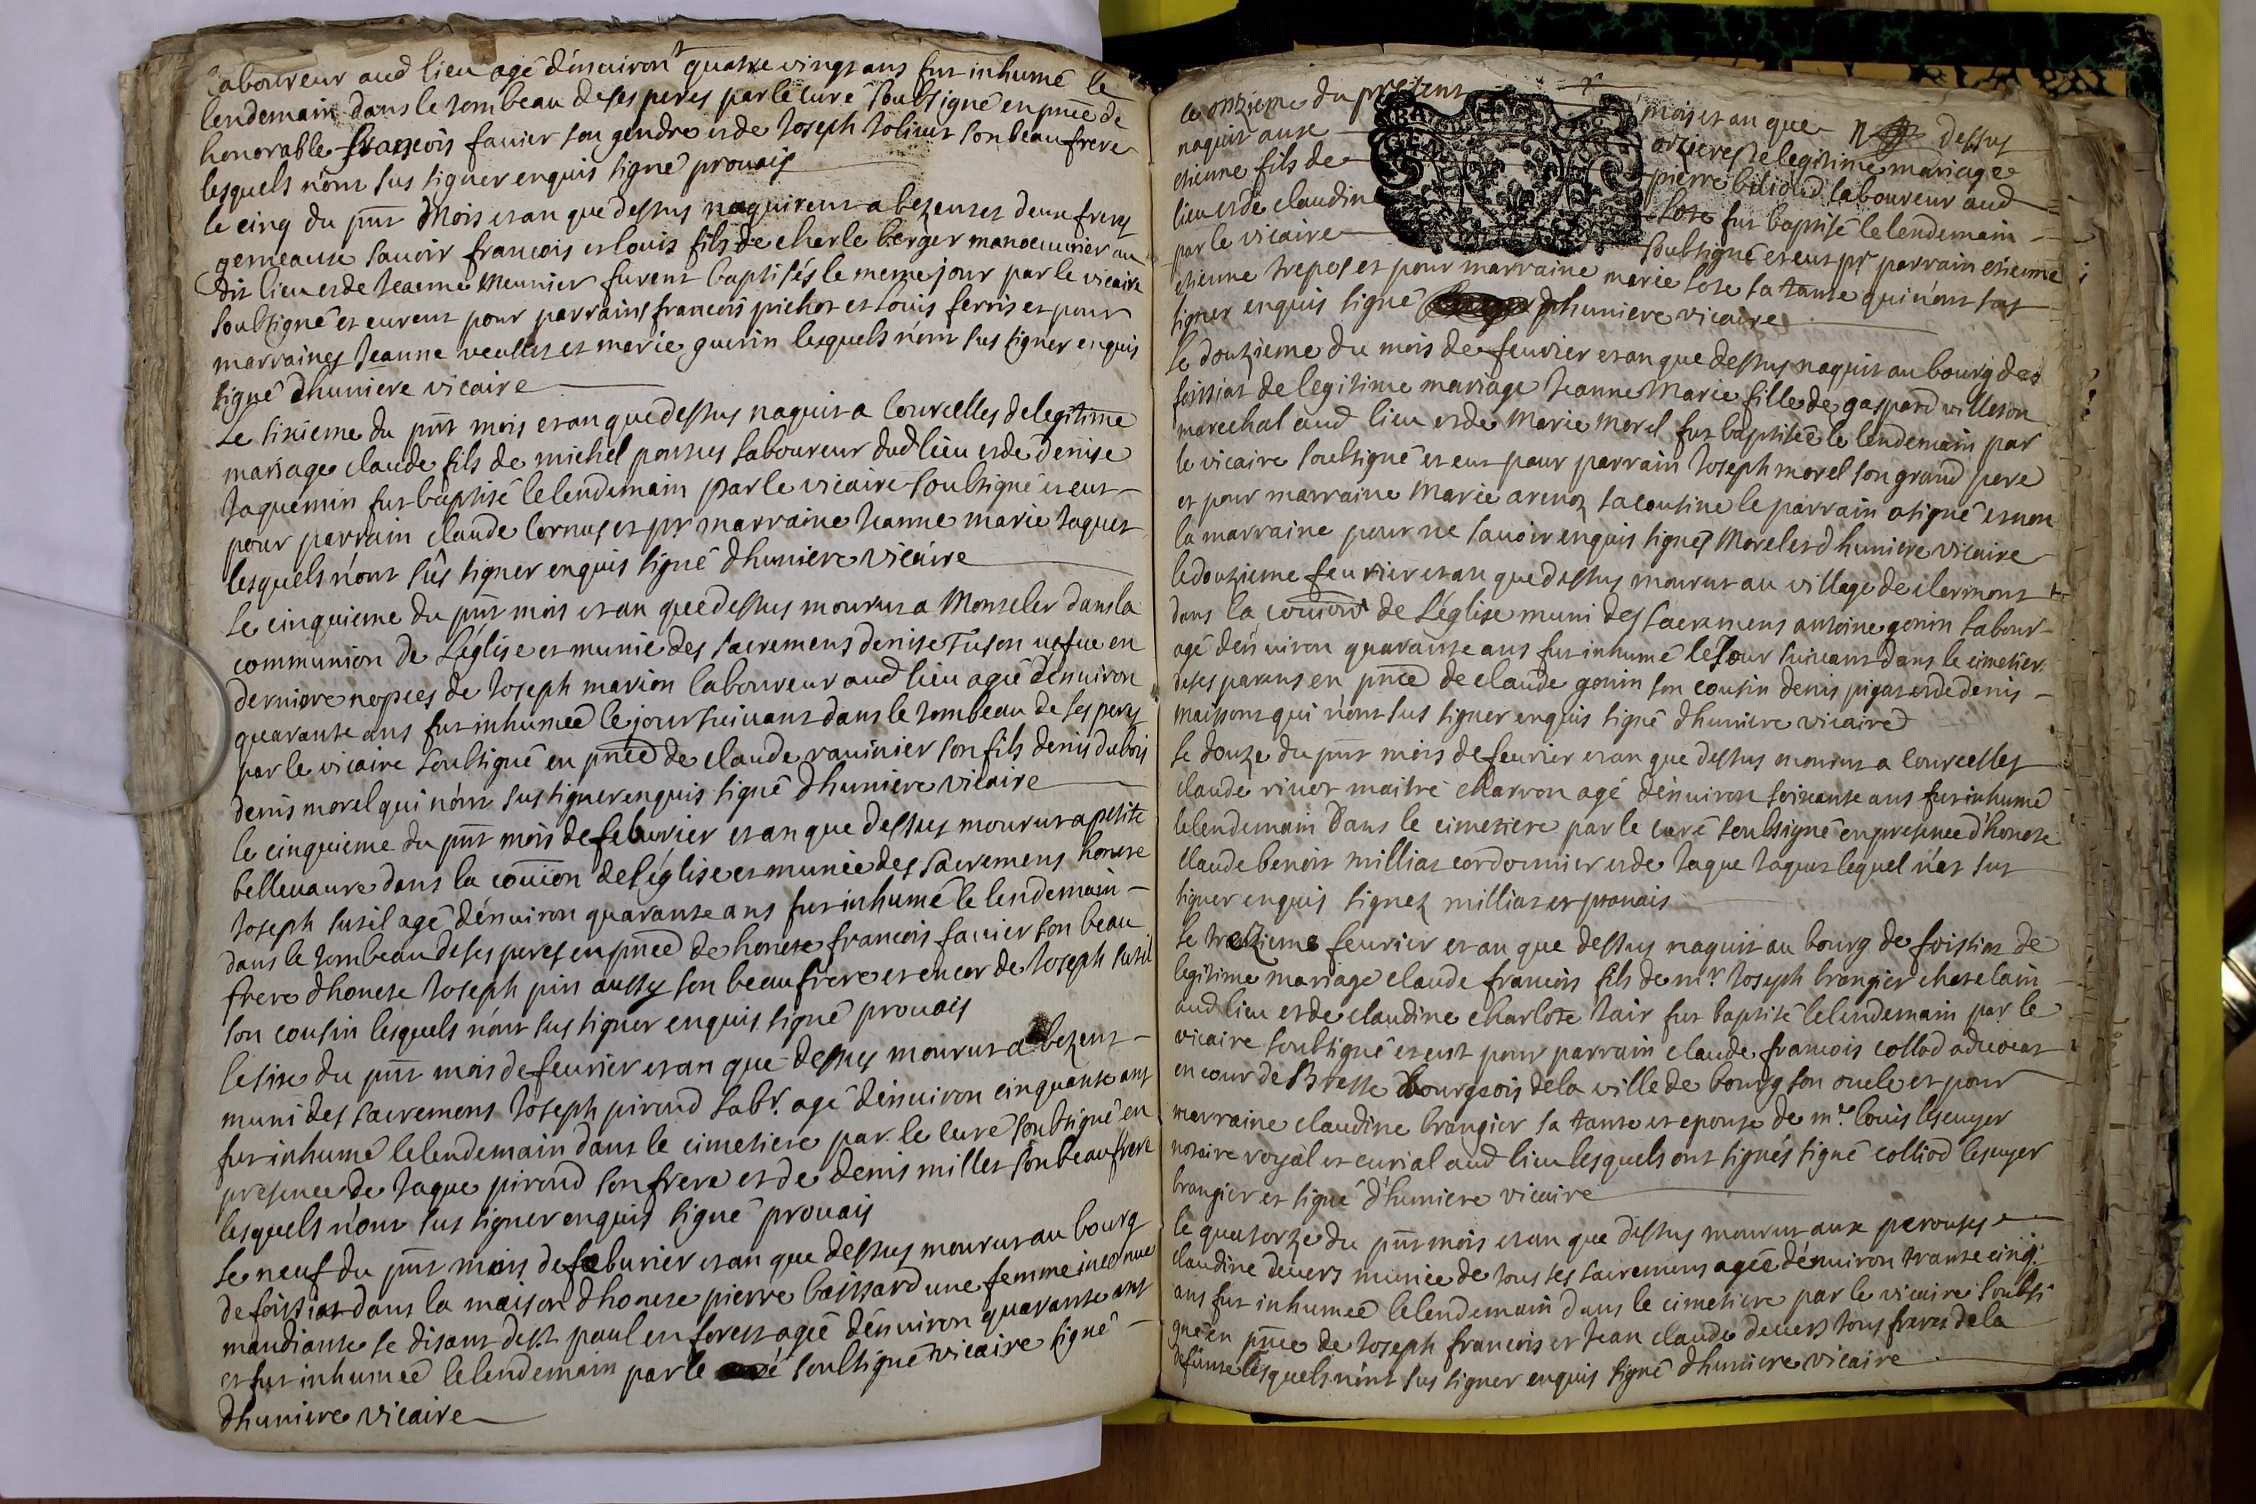 laboureur aud lieu agé d'enuiron quatre vingt ans fut inhumé le
lendemain dans le tombeau de ses peres par le curé soubsigné en pnce de
honorable françois fauier son gendre et de Joseph Joliuet son beau frere
lesquels n'ont sus signer enquis signé prouais
le cinq du pnt Mois et an que dessus naquirent a bezentet deux freres
gemeaux sauoir francois et louis fils de charle berger manoeuurier au
dit lieu et de Jeanne Meunier furent baptisés le meme jour par le vicaire
soubsigné et eurent pour parrains francois pichot et louis ferris et pour
marraines Jeanne veullet et marie guerin lesquels n'ont sus signer enquis
signé dhuniere vicaire
Le sixieme du pnt mois et an que dessus naquit a Courcelles de legitime
mariage claude fils de michel ponsus laboureur dud lieu et de denise
Jaquemin fut baptisé le lendemain par le vicaire soubsigné et eut
pour parrain claude Cornus et pr marraine Jeanne marie Jaquet
lesquels n'ont sûs signer enquis signé dhuniere vicaire
Le cinquieme du pnt mois et an que dessus mourut a Monseler dans la
communion de L'église et munie des sacremens denise Tuson uefue en
derniere nopces de Joseph marion laboureur aud lieu agée d'enuiron
quarante ans fut inhumée le jour suiuant dans le tombeau de ses peres
par le vicaire soubsigné en pnce de claude rauinier son fils denis dubois
denis morel qui n'ont sus signer enquis signé dhuniere vicaire
le cinquieme du pnt mois de feburier et an que dessus mourut a petite
belleuaure dans la couion de l'église et munie des sacremens honete
Joseph sutil agé d'enuiron quarante ans fut inhumé le lendemain
dans le tombeau de ses peres en pnce de honete francois fauier son beau
frere d'honete Joseph pin aussy son beau frere et encor de Joseph sutil
son cousin lesquels n'ont sus signer enquis signé prouais
le six du pnt mois de feurier et an que dessus mourut a bezent
muni des sacremens Joseph piroud labr. agé d'enuiron cinquante ans
fut inhumé le lendemain dans le cimetiere par le curé soubsigné en
presence de Jaque piroud son frere et de denis millet son beau frere
lesquels n'ont sus signer enquis signé prouais
Le neuf du pnt mois de feburier et an que dessus mourut au bourg
de foissiat dans la maison d'honete pierre bassard une femme inconnue
mandiante se disant de st. paul en forest agée d'enuiron quarante ans
et fut inhumée le lendemain par le soubsigné vicaire signé
dhuniere vicaire
le onzieme du present mois et an que dessus
naquit aux orcieres de legitime mariage
etienne fils de pierre beliond laboureur aud
lieu et de claudine Lose fut baptisé le lendemain
par le vicaire soubsigné et eut pr parrain etienne
etienne trepos et pour marraine marie Lose sa tante qui n'ont sus
signer enquis signé dhuniere vicaire
Le douzieme du mois de feurier et an que dessus naquit au bourg de
foissiat de legitime mariage Jeanne Marie fille de gaspard villeton
marechal aud lieu et de Marie Morel fut baptisée le lendemain par
le vicaire soubsigné et eut pour parrain Joseph morel son grand pere
et pour marraine Marie arenoz sa cousine le parrain a signé et non
la marraine pour ne sauoir enquis signez Morel et dhuniere vicaire
le douzieme feurier et an que dessus mourut au village de clermont
dans la couion de L'église muni des sacremens antoine gonin labour-
agé d'enuiron quarante ans fut inhumé le Jour suiuant dans le cimetier
de ses parens en pnce de claude gonin son cousin denis pigat et de denis
maissont qui n'ont sus signer enquis signé dhuniere vicaire
Le douze du pnt mois de feurier et an que dessus mourut a Courcelles
claude riuet maitre charron agé d'enuiron soixante ans fut inhumé
le lendemain Dans le cimetiere par le curé soubsigné en presence d'honete
claude benoit milliat cordonnier et de Jaque Jaquet lequel n'at sus
signer enquis signez milliat et prouais
Le treizieme feurier et an que dessus naquit au bourg de foissiat de
legitime mariage claude francois fils de mr. Joseph brangier chatelain
aud lieu et de claudine charlote Tair fut baptisé le lendemain par le
vicaire soubsigné et eut pour parrain claude francois colliod aduocat
en cour de Bresse bourgeois de la ville de bourg son oncle et pour
marraine claudine brangier sa tante et epouse de me. louis lescuyer
notaire royal et curial aud lieu lesquels ont signés signé colliod lescuyer
brangier et signé d'huniere vicaire
le quatorze du pnt mois et an que dessus mourut aux perouses
claudine deuers munie de tous ses sacremens agée d'enuiron trante cinq
ans fut inhumée le lendemain dans le cimetiere par le vicaire soubsi
gné en pnce de Joseph francois et Jean claude deuers tous freres de la
defunte lesquels n'ont sus signer enquis signé dhuniere vicaire